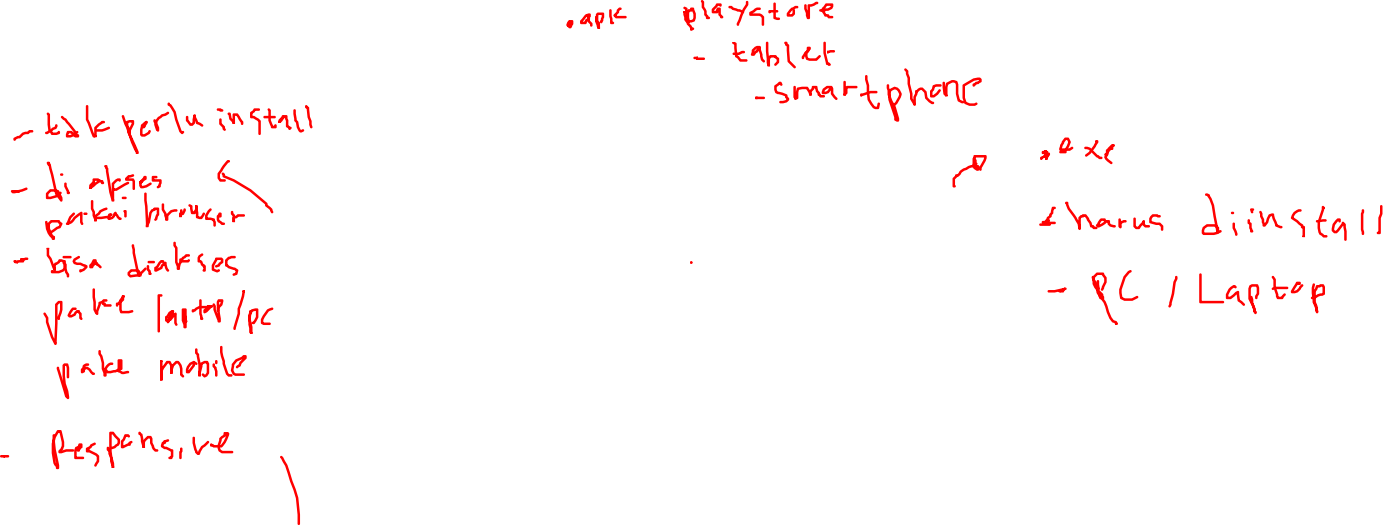 .apk playstore
- tablet
- smartphone
- tak perlu install
- di akses
pakai browser
- bisa diakses
pake laptop/pc
pake mobile
- Responsive
.exe
- harus diinstall
- PC / Laptop